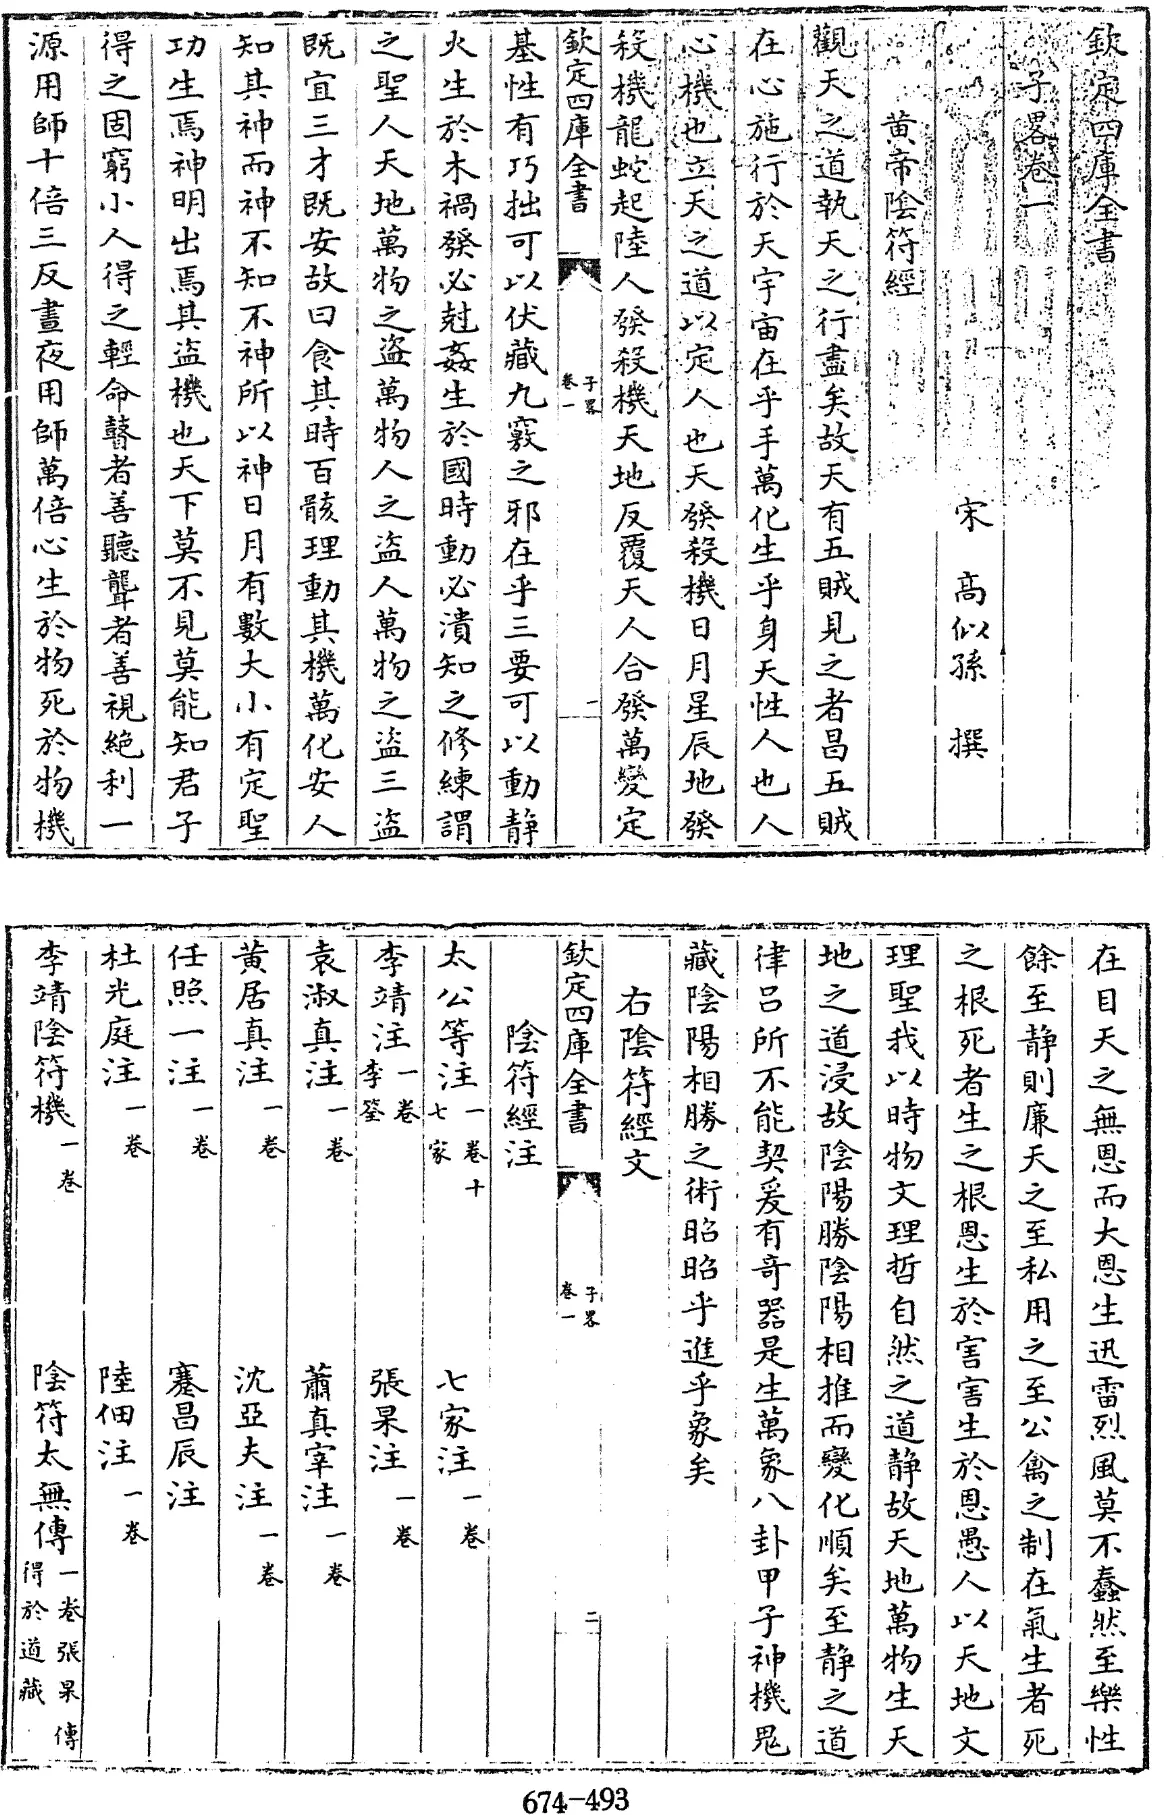 欽定四庫全書
子畧卷一
宋 高似孫 撰
黄帝陰符經
觀天之道執天之行盡矣故天有五賊見之者昌五賊
在心施行於天宇宙在乎手萬化生乎身天性人也人
心機也立天之道以定人也天發殺機日月星辰地發
殺機龍蛇起陸人發殺機天地反覆天人合發萬變定
欽定四庫全書
子畧
卷一
一
基性有巧拙可以伏藏九竅之邪在乎三要可以動静
火生於木禍發必尅姦生於國時動必潰知之修練謂
之聖人天地萬物之盗萬物人之盗人萬物之盗三盗
既宜三才既安故曰食其時百骸理動其機萬化安人
知其神而神不知不神所以神日月有數大小有定聖
功生焉神明出焉其盗機也天下莫不見莫能知君子
得之固窮小人得之輕命瞽者善聽聾者善視絶利一
源用師十倍三反晝夜用師萬倍心生於物死於物機
在目天之無恩而大恩生迅雷烈風莫不蠢然至樂性
餘至静則廉天之至私用之至公禽之制在氣生者死
之根死者生之根恩生於害害生於恩愚人以天地文
理聖我以時物文理哲自然之道静故天地萬物生天
地之道浸故陰陽勝陰陽相推而變化順矣至静之道
律吕所不能契爰有奇器是生萬象八卦甲子神機鬼
藏陰陽相勝之術昭昭乎進乎象矣
右陰符經文
欽定四庫全書
子畧
卷一
二
陰符經注
太公等注一卷十七家 七家注一卷
李靖注一卷李筌 張果注一卷
袁淑真注一卷 蕭真宰注一卷
黄居真注一卷 沈亞夫注一卷
任照一注一卷 蹇昌辰注
杜光庭注一卷 陸佃注一卷
李靖陰符機一卷 陰符太無傳一卷張果傳得於道藏
674-493